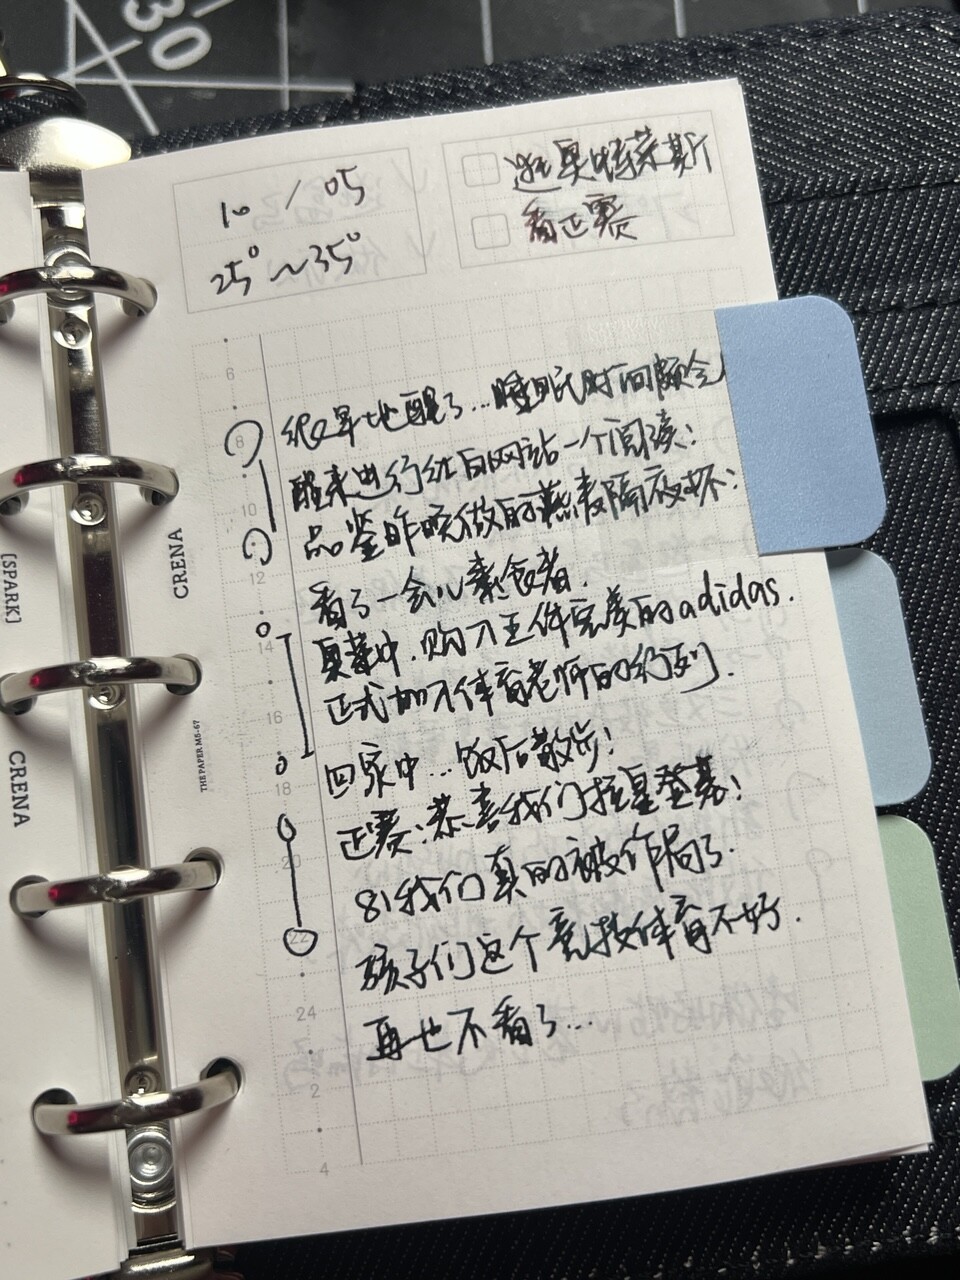 30
10 / 05
25° ~ 35°
逛奥特莱斯
看正赛
6
8
10
12
14
16
18
20
22
24
2
4
很早地醒了...睡眠时间颇
醒来进行红白网站一个阅读:
品鉴昨晚做的燕麦隔夜杯:
看了一会儿素食者.
夏菜中.购入五件完美的adidas.
正式加入体育老师的行列.
回家中...饭后散步!
正赛:恭喜我们拉皇登基!
81我们真的被作局了.
孩子们这个竞技体育不好.
再也不看了...
CRENA
[SPARK]
CRENA
THE PAPER M5-67